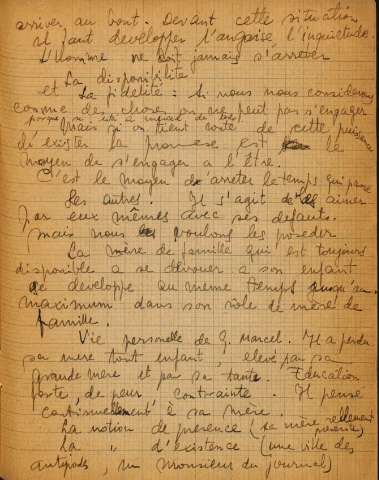 arriver au bout. Devant cette situation
il faut developper l'angoisse l'inquietude.
L'homme ne doit jamais s'arreter
La disponibilité
et La fidelité : Si nous nous considerons
comme des choses on ne peut pas s'engager
Mais si on tient compte de cette puissance
d'exister la promesse est le
moyen de s'engager a l'être.
C'est le moyen d'arreter le temps qui passe
Les autres. Il s'agit de les aimer
par eux mêmes avec ses defauts.
mais nous voulons les posseder
La mère de famille qui est toujours
disponible a se devouer a son enfant
se developpe au meme temps jusqu'au
maximum dans son role de mère de
famille.
Vie personelle de G. Marcel. Il a perdu
sa mere tout enfant, elevé par sa
grande mère et par sa tante. Education
forte, de peur, contrainte. Il pense
continuellement à sa mère.
La notion de presence (sa mère reellement presente)
La " d'existence (une ville des
antipods, un Monsieur du journal)